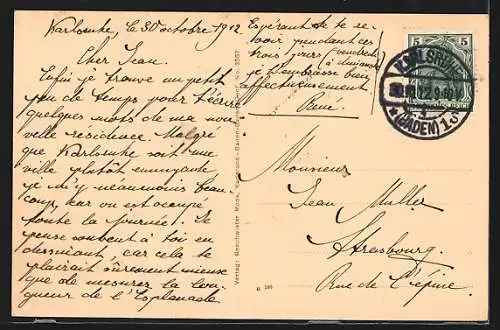 Karlsruhe, le 30 octobre 1912
Cher Jean.
Enfin je trouve un petit
peu de temps pour t'écrire
quelques mots de ma nou
velle residence. Malgré
que Karlsruhe soit une
ville plutôt ennuyante
je m'y néaumoins beau
coup, kar on est occupé
toute la journée. Je
pense souvent à toi en
dessinant, car cela te
plairait sûrement mieux
que de mesurer la lon
gueur de l'Esplanade
Espérant de te re-
voir pendant ces
trois jours (vendredi
à dimanche)
je t'embrasse bien
affectueusement
René.
Verlag: Geschwister Moos, Karlsruhe-Baden
5 5
KARLSRUHE
(BADEN) 1.
Monsieur
Jean Muller
Strasbourg.
Rue de l'épine.